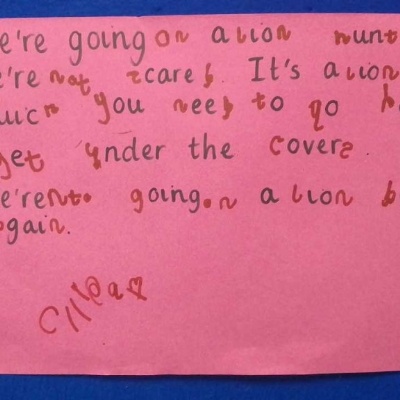 e're going on a lion hunt
e're not scared. It's a lion
uick you need to go
get under the covers.
e're not going on a lion
again.